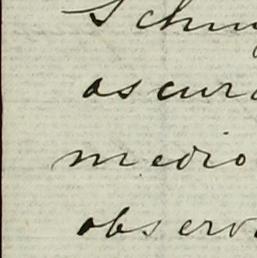 Schm
oscur
medio
observ